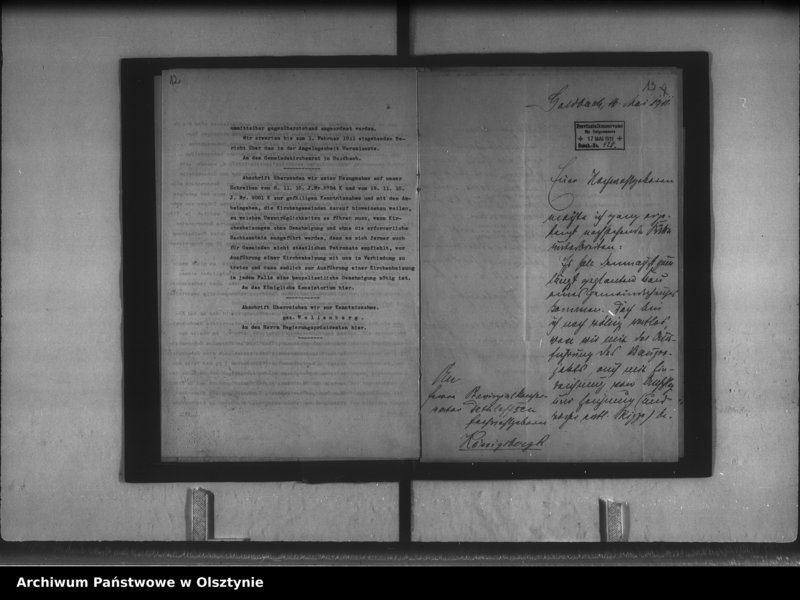 12
unmittelbar gegenüberstehend angeordnet werden.
Wir erwarten bis zum 1. Februar 1911 eingehenden Be-
richt über das in der Angelegenheit Veranlasste.
An den Gemeindekirchenrat in Goldbach.
Abschrift übersenden wir unter Bezugnahme auf unser
Schreiben vom 11. 10. J.Nr. K und vom 11. 10.
J. Nr. 9001 K zur gefälligen Kenntnisnahme und mit dem An-
heimgeben, die Kirchengemeinden darauf hinweisen zu wollen,
zu welchen Unzuträglichkeiten es führen muss, wenn Kir-
chenheizungen ohne Genehmigung und ohne die erforderliche
Sachkenntnis ausgeführt werden, dass es sich ferner auch
für Gemeinden nicht staatlichen Patronats empfiehlt, vor
Ausführung einer Kirchenheizung mit uns in Verbindung zu
treten und dass endlich zur Ausführung einer Kirchenheizung
in jedem Falle eine baupolizeiliche Genehmigung nötig ist.
An das Königliche Konsistorium hier.
Abschrift überreichen wir zur Kenntnisnahme.
gez. Wollenberg.
An den Herrn Regierungspräsidenten hier.
13
Goldbach, Mai 1911.
Provinzialkonservator
für Ostpreussen
17 MAI 1911
Euer Hochwohlgeboren
möchte ich ganz erge-
benst nachstehende Bitte
unterbreiten:
Es soll demnächst zum
längst geplanten Bau
eines Gemeindehauses
kommen. Doch bin
ich noch völlig ratlos,
wie wir mit der Aus-
führung des Baupro-
jekts und mit Ein-
reichung von
und Zeichnung
Skizze
An
Herrn Provinzialkonser-
vator Dethlefsen
Hochwohlgeboren
Königsberg
Archiwum Państwowe w Olsztynie